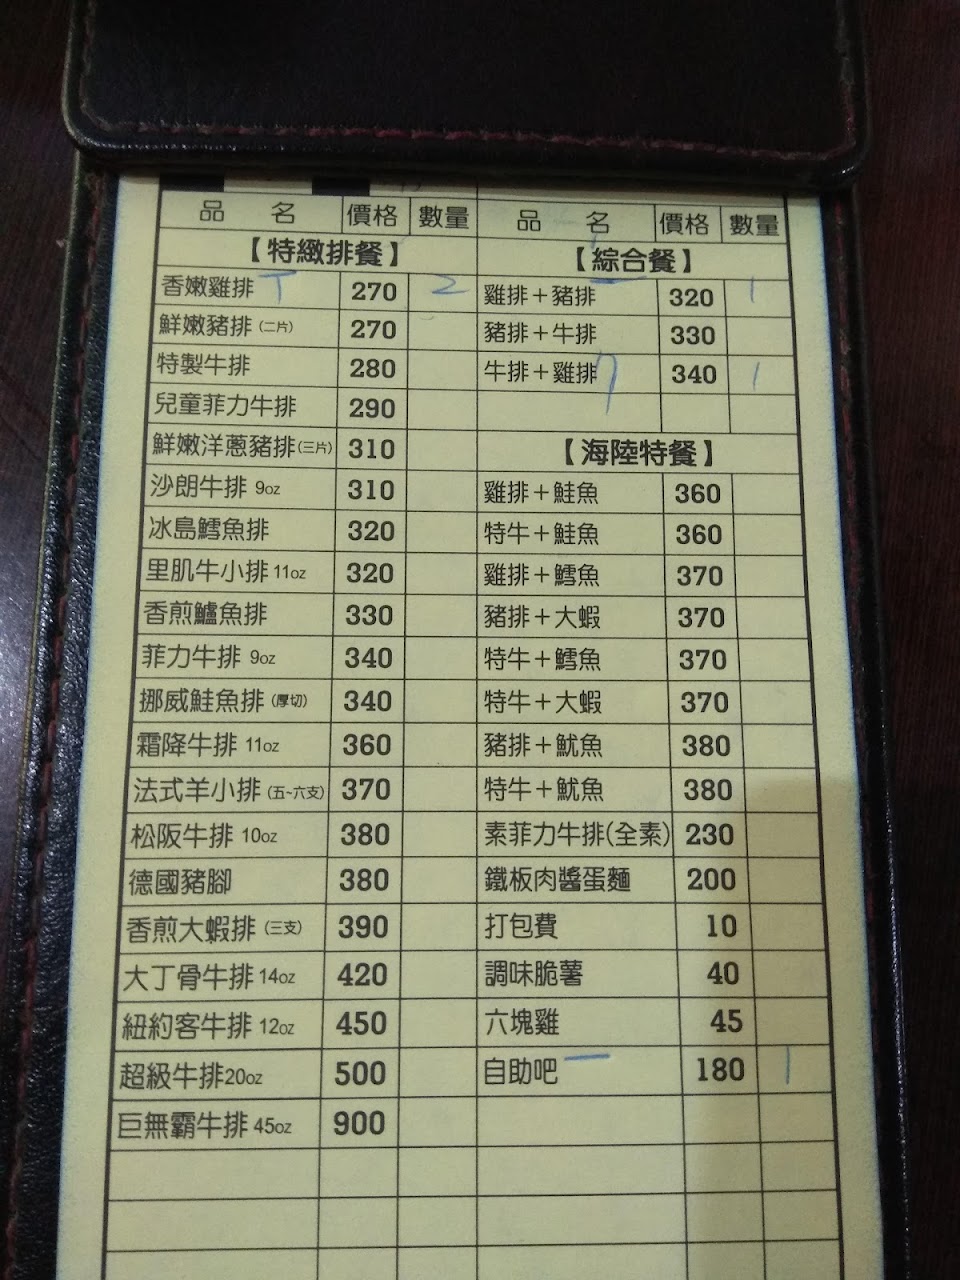 品 名 價格 數量
【特緻排餐】
香嫩雞排 270 2
鮮嫩豬排(二片) 270
特製牛排 280
兒童菲力牛排 290
鮮嫩洋蔥豬排(三片) 310
沙朗牛排 9oz 310
冰島鱈魚排 320
里肌牛小排 11oz 320
香煎鱸魚排 330
菲力牛排 9oz 340
挪威鮭魚排(厚切) 340
霜降牛排 11oz 360
法式羊小排(五~六支) 370
松阪牛排 10oz 380
德國豬腳 380
香煎大蝦排(三支) 390
大丁骨牛排 14oz 420
紐約客牛排 12oz 450
超級牛排20oz 500
巨無霸牛排 45oz 900
品 名 價格 數量
【綜合餐】
雞排+豬排 320 1
豬排+牛排 330
牛排+雞排 7 340 1
【海陸特餐】
雞排+鮭魚 360
特牛+鮭魚 360
雞排+鱈魚 370
豬排+大蝦 370
特牛+鱈魚 370
特牛+大蝦 370
豬排+魷魚 380
特牛+魷魚 380
素菲力牛排(全素) 230
鐵板肉醬蛋麵 200
打包費 10
調味脆薯 40
六塊雞 45
自助吧 180 1